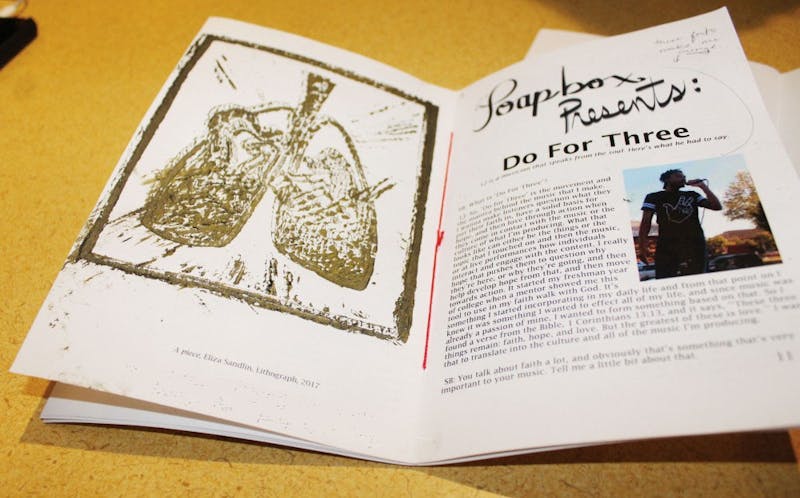 A piece, Eliza Sandlin, Lithograph, 2017
these fonts
make me
Soapbox
Presents:
Do For Three
LJ is a musician that speaks from the soul. Here's what he had to say.
SB: What is "Do For Three"?
LJ: So, "Do For Three" is the movement and
behind the music that I make.
listeners question what they
have a solid basis for
through action when
they come in contact with the music or the
content of what I'm producing. What that
looks like can either be the things or the
and then the music,
or at performances how individuals
interact and engage with the content. I really
hope that pushes them to question why
they're here, or why they're going, and then
help develop hope from that, and then move
towards action. It started my freshman year
of college when a mentor showed me this
tool to use in my faith walk with God. It's
something I started incorporating in my daily life and from that point on I
knew it was something I wanted to effect all of my life, and since music was
already a passion of mine, I wanted to form something based on that. So I
found a verse from the Bible, 1 Corinthians 13:13, and it says, "These three
things remain: faith, hope, and love. But the greatest of these is love." I was
that to translate into the culture and all of the music I'm producing.
SB: You talk about faith a lot, and obviously that's something that's very
important to your music. Tell me a little bit about that.
11